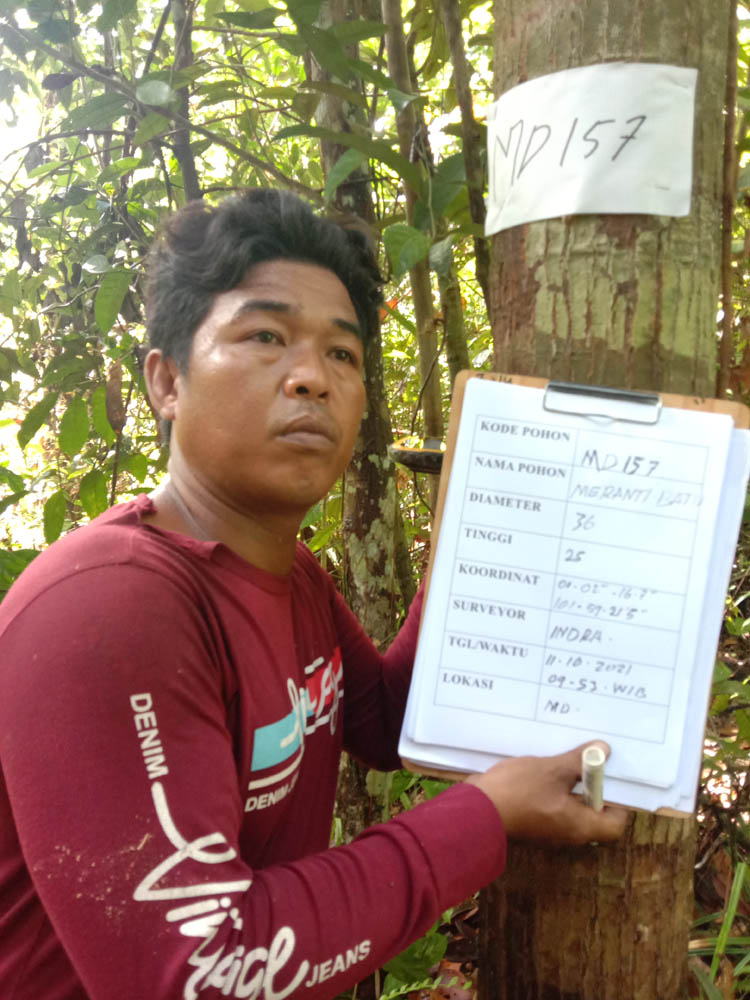 MD 157
KODE POHON MD 157
NAMA POHON MERANTI BATU
DIAMETER 36
TINGGI 25
KOORDINAT 00-02"-16.7"
101-59-21.5"
SURVEYOR INDRA.
TGL/WAKTU 11-10-2021
09-53. WIB
LOKASI MD.
DENIM
Vintage
JEANS
DENIM